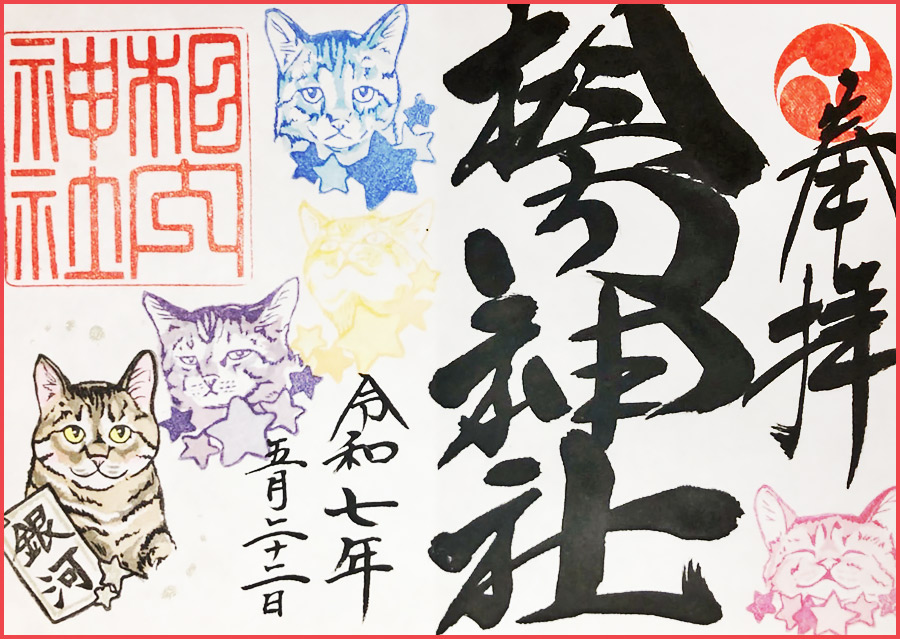 奉拝
相内神社
令和七年
五月二十二日
相内
神社
銀河